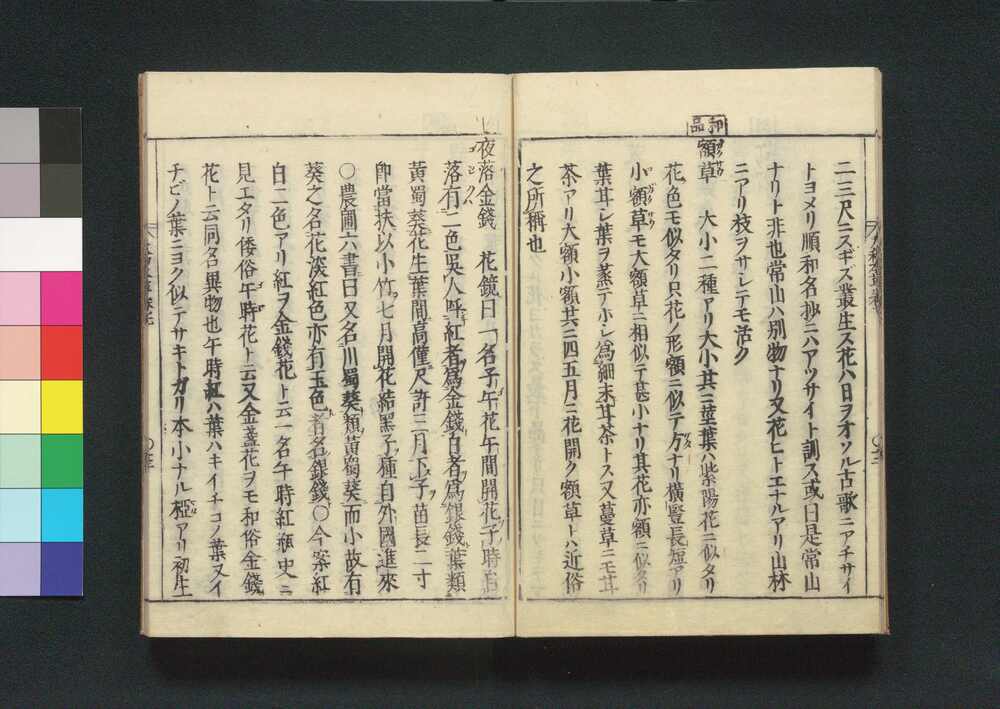 二三尺ニスギズ叢生ス花ハ日ヲオソル古歌ニアチサイ
トヨメリ順和名抄ニハアツサイト訓ス或曰是常山
ナリト非也常山ハ別物ナリ又花ヒトエナルアリ山林
ニアリ枝ヲサシテモ活ク
和品
額草 大小二種アリ大小共ニ莖葉ハ紫陽花ニ似タリ
花色モ似タリ只花ノ形額ニ似テ方ナリ橫豎長短アリ
小額草モ大額草ニ相似テ甚小ナリ其花亦額ニ似タリ
葉甘シ葉ヲ蒸テホシ爲細末甘茶トス又蔓草ニモ甘
茶アリ大額小額共ニ四五月ニ花開ク額草トハ近俗
之所稱也
夜落金錢 花鏡曰一名子午花午間開花子時自
落有二色吳人呼紅者爲金錢白者爲銀錢葉類
黃蜀葵花生葉間高僅尺許三月下子苗長二寸
卽當扶以小竹七月開花結黑子種自外國進來
○農圃六書曰又名川蜀葵類黃蜀葵而小故有
葵之名花淡紅色亦有玉色者名銀錢○今案紅
白二色アリ紅ヲ金錢花ト云一名午時紅瓶史ニ
見エタリ倭俗午時花ト云又金盞花ヲモ和俗金錢
花ト云同名異物也午時紅ハ葉ハキイチコノ葉又イ
チビノ葉ニヨク似テサキトガリ本小ナル極アリ初生